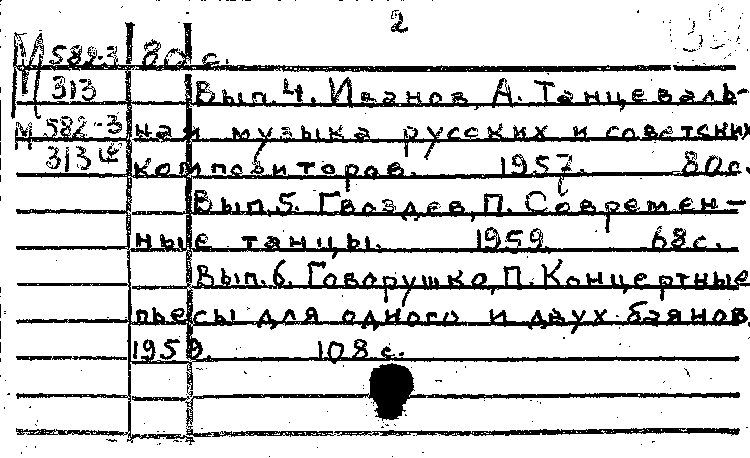 2
М 582-3 80 с.
313 Вып.4. Иванов, А. Танцеваль-
М 582-3 ная музыка русских и советских
313 композиторов. 1957. 80с.
Вып.5. Гвоздев, П. Современ-
ные танцы. 1959. 68с.
Вып.6. Говорушко, П. Концертные
пьесы для одного и двух баянов.
1959. 108 с.